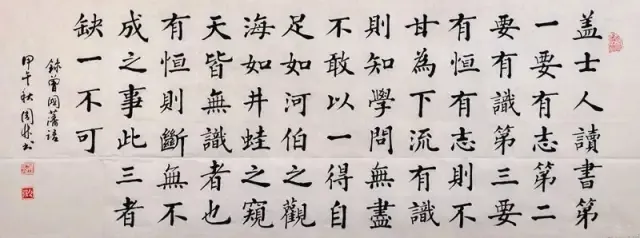 盖士人讀書第
一要有志第二
要有識第三要
有恒有志則不
甘為下流有識
則知學問無盡
不敢以一得自
足如河伯之觀
海如井蛙之窺
天皆無識者也
有恒則斷無不
成之事此三者
缺一不可
錄曾國藩語
甲午秋周书